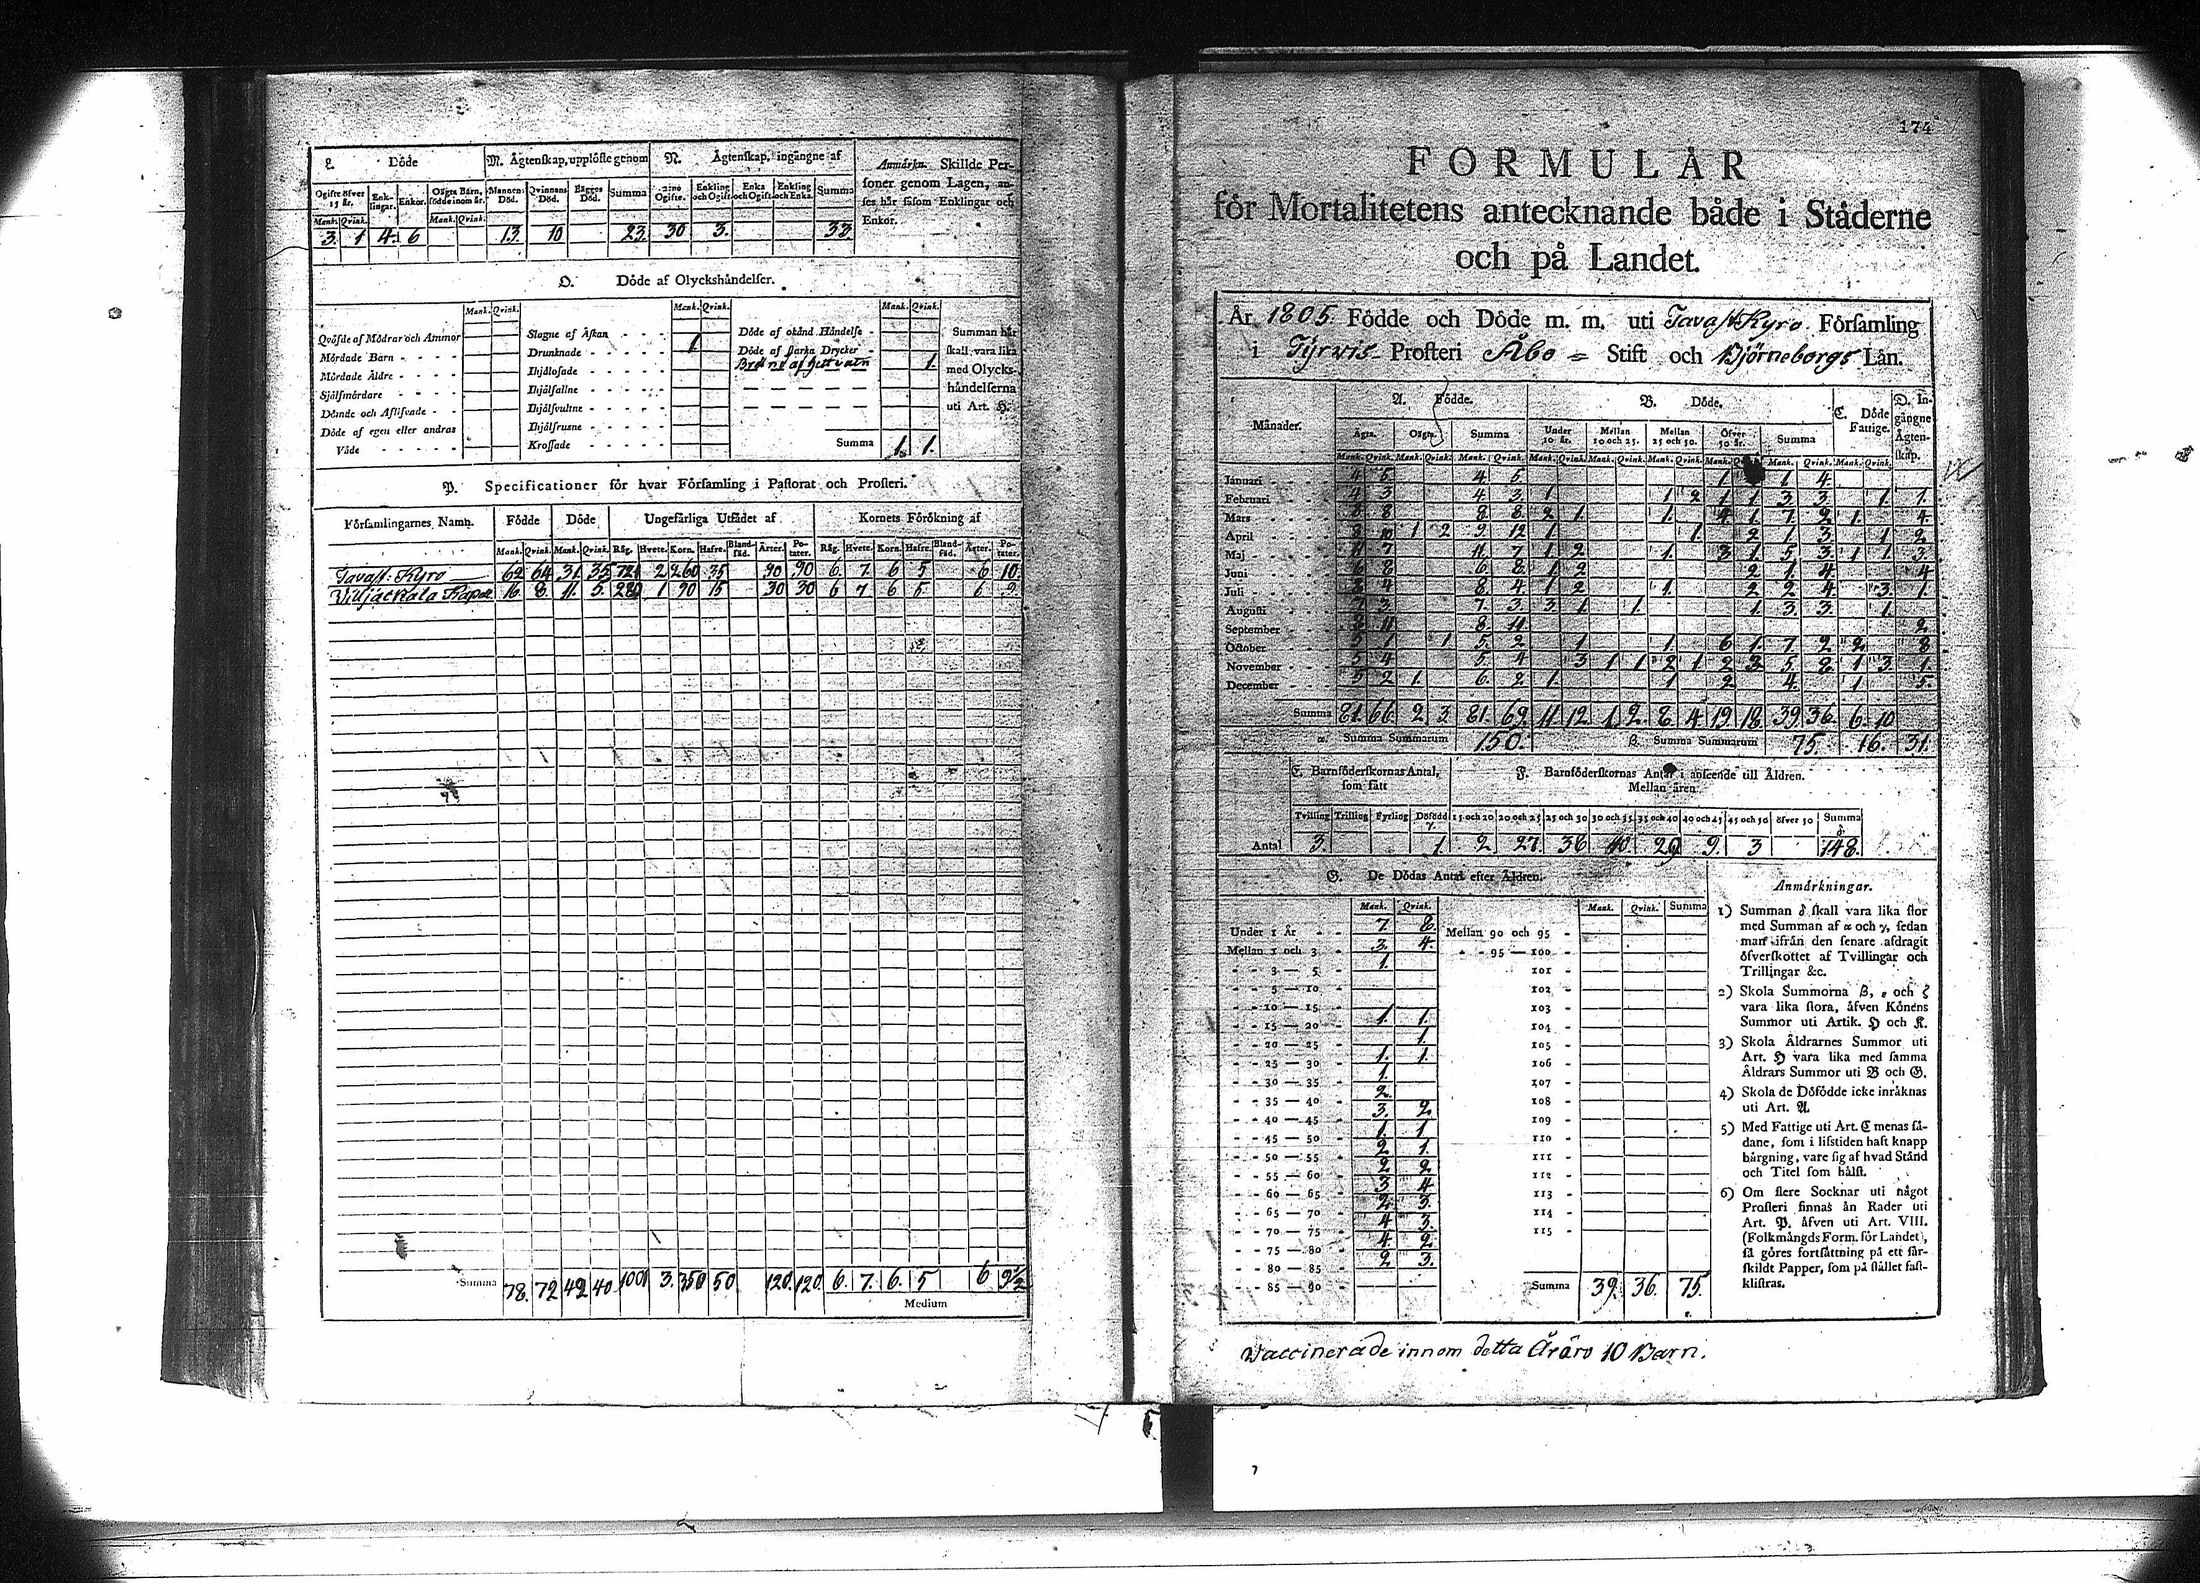 L. Döde
M. Ägtenskap, upplöste genom
N. Ägtenskap, ingångne af
Anmärkn. Skillde Per-
soner genom Lagen, an-
ses här såsom Enklingar och
Enkor.
Ogifte öfver 15 år. Enk-lingar. Enkor. Oägta Barn, födde inom år. Mannens Död. Qvinnans Död. Bägges Död. Summa Enklingar och Ogift. Enka och Ogift. Enkling och Enka. Summa
Mank. Qvink. Mank. Qvink.
3. 1 4. 6 13. 10 23. 30 3. 33.
O. Döde af Olyckshändelser.
Mank. Qvink. Mank. Qvink. Mank. Qvink.
Qväfde af Mödrar och Ammor
Mördade Barn
Mördade Äldre
Sjålfmördare
Dömde och Aflifvade
Döde af egen eller andras
Våde
Slagne af Åskan
Drunknade 1
Ihjälosade
Ihjälfallne
Ihjälsvultne
Ihjälfrusne
Krossade
Döde af okänd Händelse
Döde af starka Drycker
Bränd af hett vatn 1.
Summa 1. 1.
Summan här
skall vara lika
med Olycks-
händelserna
uti Art. H.
P. Specificationer för hvar Församling i Pastorat och Prosteri.
Församlingarnes Namn. Födde Döde Ungefärliga Utsädet af Kornets Förökning af
Mank. Qvink. Mank. Qvink. Råg. Hvete. Korn. Hafre. Bland-säd. Ärter. Po-tater. Råg. Hvete. Korn. Hafre. Bland-säd. Ärter. Po-tater.
Tavast: Kyro 62 64 31 35 721 2 260 35 90 90 6 7. 6 5 6 10.
Viljackala Kapell 16 8. 11. 5. 280 1 90 15 30 30 6 7. 6 5 6 9.
Summa 78. 72 42 40 1001 3. 350 50 120 120 6. 7. 6. 5 6 9½
Medium
174
FORMULÄR
för Mortalitetens antecknande både i Städerne
och på Landet.
År 1805. Födde och Döde m. m. uti Tavast Kyro Församling
i Tyrvis Prosteri Åbo Stift och Björneborgs Län.
Månader. A. Födde. B. Döde. C. Döde Fattige. D. In-gångne Ägten-skap.
Ägta. Oägta. Summa Under 10 år. Mellan 10 och 25. Mellan 25 och 50. Öfver 50 år. Summa
Januari 4 5 4 5 1 1 4
Februari 4 3 4 3 1 1 2 1 1 3 3 1. 1.
Mars 8 8 8 8 2 1 1. 4 1. 7. 2 1. 4.
April 8 10 1 2 9. 12 1. 1. 2 1. 3 1 2
Maj 11 7 11 7 1 2 1. 3 1. 5 3 1 1. 3.
Juni 6 8 6 8 1 2 2 1. 4 4
Juli 8 4 8. 4 1 2 1. 2 2 4 3. 1.
Augusti 7 3 7. 3 3 1 1. 1. 3. 3 1.
September 8 11 8. 11. 2
October 5 1 1 5. 2 1 1. 6 1. 7. 2 2. 8
November 5 4 5. 4 3 1 1 2 1. 2 3 5 8 1 3 1.
December 5 2 1. 6. 2 1. 1 2 4. 1 5.
Summa 81. 66. 2 3. 81. 69. 11 12 1. 2. 8 4. 19. 18. 39. 36. 6. 10
α. Summa Summarum 150. β. Summa Summarum 75. 16. 31.
E. Barnföderskornas Antal, som fått
F. Barnföderskornas Antal i anseende till Åldren.
Mellan åren
Tvilling Trilling Fyrling Dödfödd γ. 15 och 20 20 och 25 25 och 30 30 och 35 35 och 40 40 och 45 45 och 50 öfver 50 Summa δ
Antal 3. 1 2. 27. 36 40. 29 9. 3 148.
G. De Dödas Antal efter Åldren.
Mank. Qvink. Mank. Qvink. Summa
Under 1 År 7. 8
Mellan 1 och 3 3. 4.
3 — 5 1.
5 — 10
10 — 15
15 — 20 1. 1.
20 — 25 1.
25 — 30 1. 1.
30 — 35 1.
35 — 40 2.
40 — 45 3. 2
45 — 50 1. 1
50 — 55 2 1.
55 — 60 2 2
60 — 65 3 4
65 — 70 2 3.
70 — 75 4 3.
75 — 80 4. 2
80 — 85 2 3.
85 — 90
Mellan 90 och 95
95 — 100
101
102
103
104
105
106
107
108
109
110
111
112
113
114
115
Summa 39. 36. 75.
ε.
Anmärkningar.
1) Summan δ skall vara lika stor
med Summan af α och γ, sedan
man ifrån den senare afdragit
öfverskottet af Tvillingar och
Trillingar &c.
2) Skola Summorna β, ε och ζ
vara lika stora, äfven Könens
Summor uti Artik. H och K.
3) Skola Åldrarnes Summor uti
Art. H vara lika med samma
Åldrars Summor uti B och G.
4) Skola de Dödfödde icke inräknas
uti Art. A.
5) Med Fattige uti Art. C menas så-
dane, som i lifstiden haft knapp
bärgning, vare sig af hvad Stånd
och Titel som hälst.
6) Om flere Socknar uti något
Prosteri finnas än Rader uti
Art. P. äfven uti Art. VIII.
(Folkmängds Form. för Landet),
så göres fortsättning på ett sär-
skildt Papper, som på stället fast-
klistras.
Vaccinerade innom detta År äro 10 Barn.